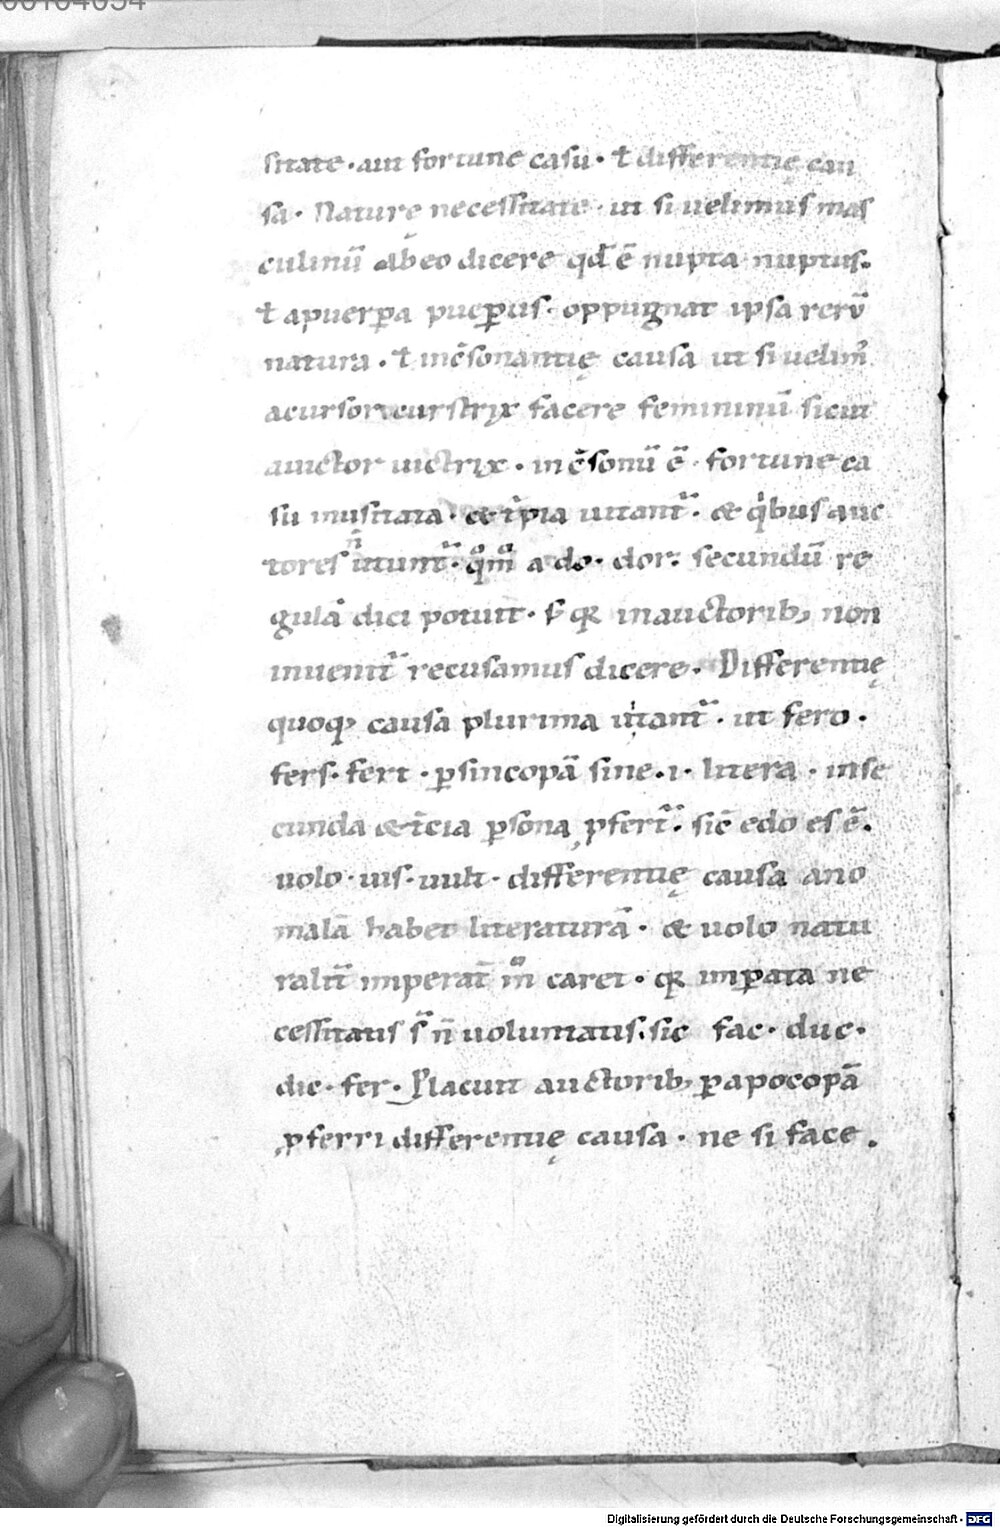 sitate · aut fortune casu · ł differentię cau
sa · Naturę necessitate · ut si uelimus mas
culinū abeo dicere qđ ē nupta nuptus.
ł apuerꝑa pueꝑus · oppugnat ipsa rerū
natura · ł incōsonantię causa ut si uelim᷒
acursor curstrix facere femininū sicut
auictor uictrix · incōsonū ē · fortune ca
su inusitata · & īpia uitant᷑ · & qͥbus auc
tores ñ utunt᷑ · qͦmͦ a do · dor · secundū re
gulā dici potuit · sꝫ qꝛ inauctoribꝫ non
inuenit᷑ recusamus dicere · Differentię
quoqꝫ causa plurima uitant᷑ · ut fero ·
fers · fert · ꝑsincopā sine · i · litera · inse
cunda & t̄cia ꝑsona ꝓfert᷑ · sic̄ edo es ē ·
uolo · uis · uult · differentię causa ano
malā habet literaturā · & uolo natu
ralit᷑ imperat̄ mͦ caret · qꝛ imꝑata ne
cessitatis s᷑ ñ uoluntatis · sic fac · duc ·
dic · fer · Placuit auctoribꝫ ꝑapocopā
ꝓferri differentię causa · ne si face ·
Digitalisierung gefördert durch die Deutsche Forschungsgemeinschaft - DFG